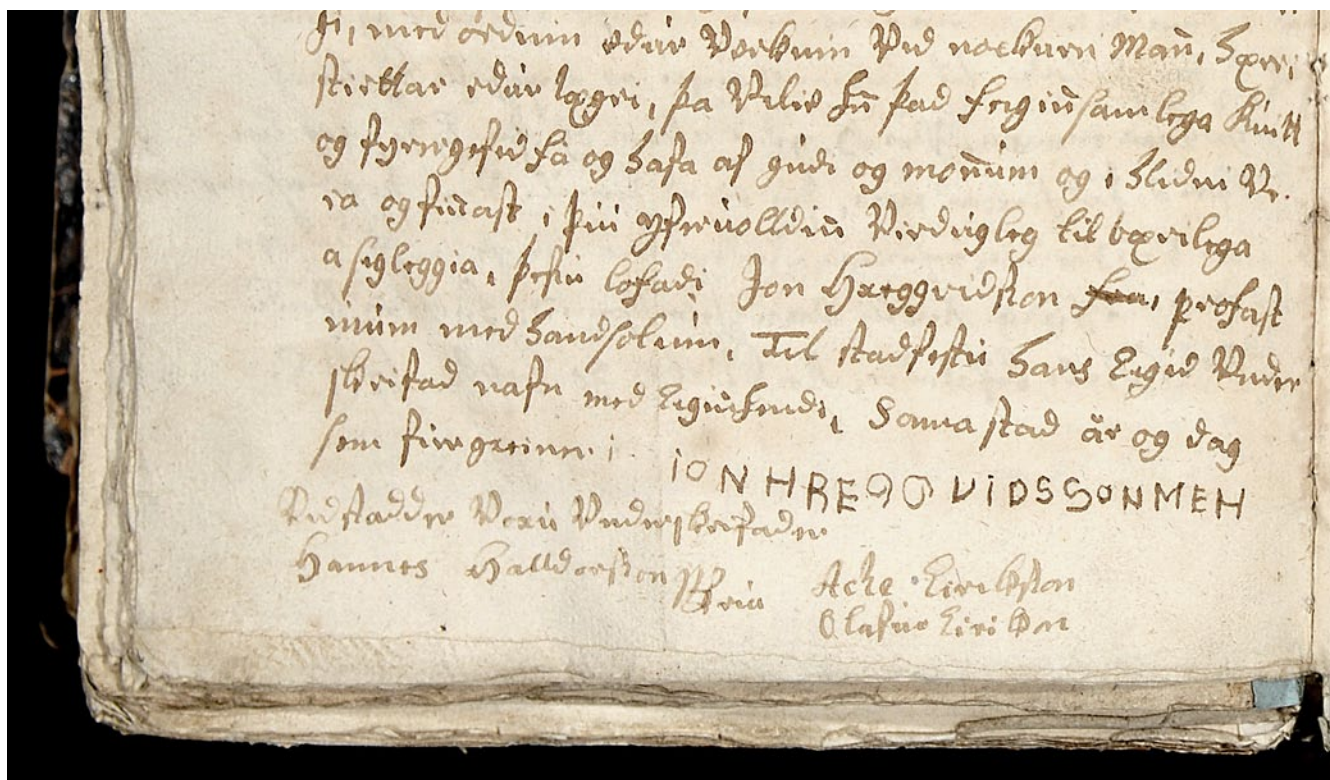 med ordum edur Verkum Vid nockurn Mañ, hærri
stiettar edur lægri, þa Vilie hñ þad feiginsamlega kuitt
og fyrergefid fá og hafa af gudi og moñum og i hlidni Ve-
ra og fiñast i þui yfervolldiñ Virdugleg til bærilega
a sigleggia, þessu lofadi Jon Hreggvidsson profast
inum med handsolum, Til stadfestu hans Eigid Under
skrifad nafn med Eiginhendi, Sama stad är og dag
sem firergreiner:
ION HREGG VIDSSON MEH
Vidstadder Voru Underskrifader
Hannes Halldorsson Ejriksson
Olafur